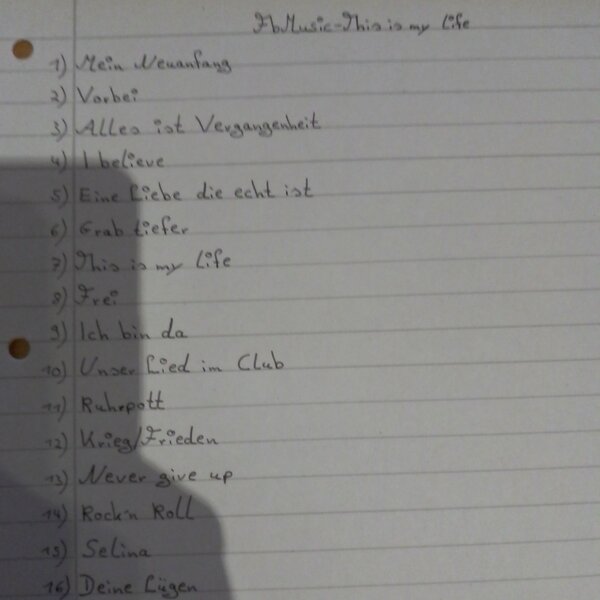 FbMusic-This is my Life
1) Mein Neuanfang
2) Vorbei
3) Alles ist Vergangenheit
4) I believe
5) Eine Liebe die echt ist
6) Grab tiefer
7) This is my Life
8) Frei
9) Ich bin da
10) Unser Lied im Club
11) Ruhrpott
12) Krieg/Frieden
13) Never give up
14) Rock'n Roll
15) Selina
16) Deine Lügen